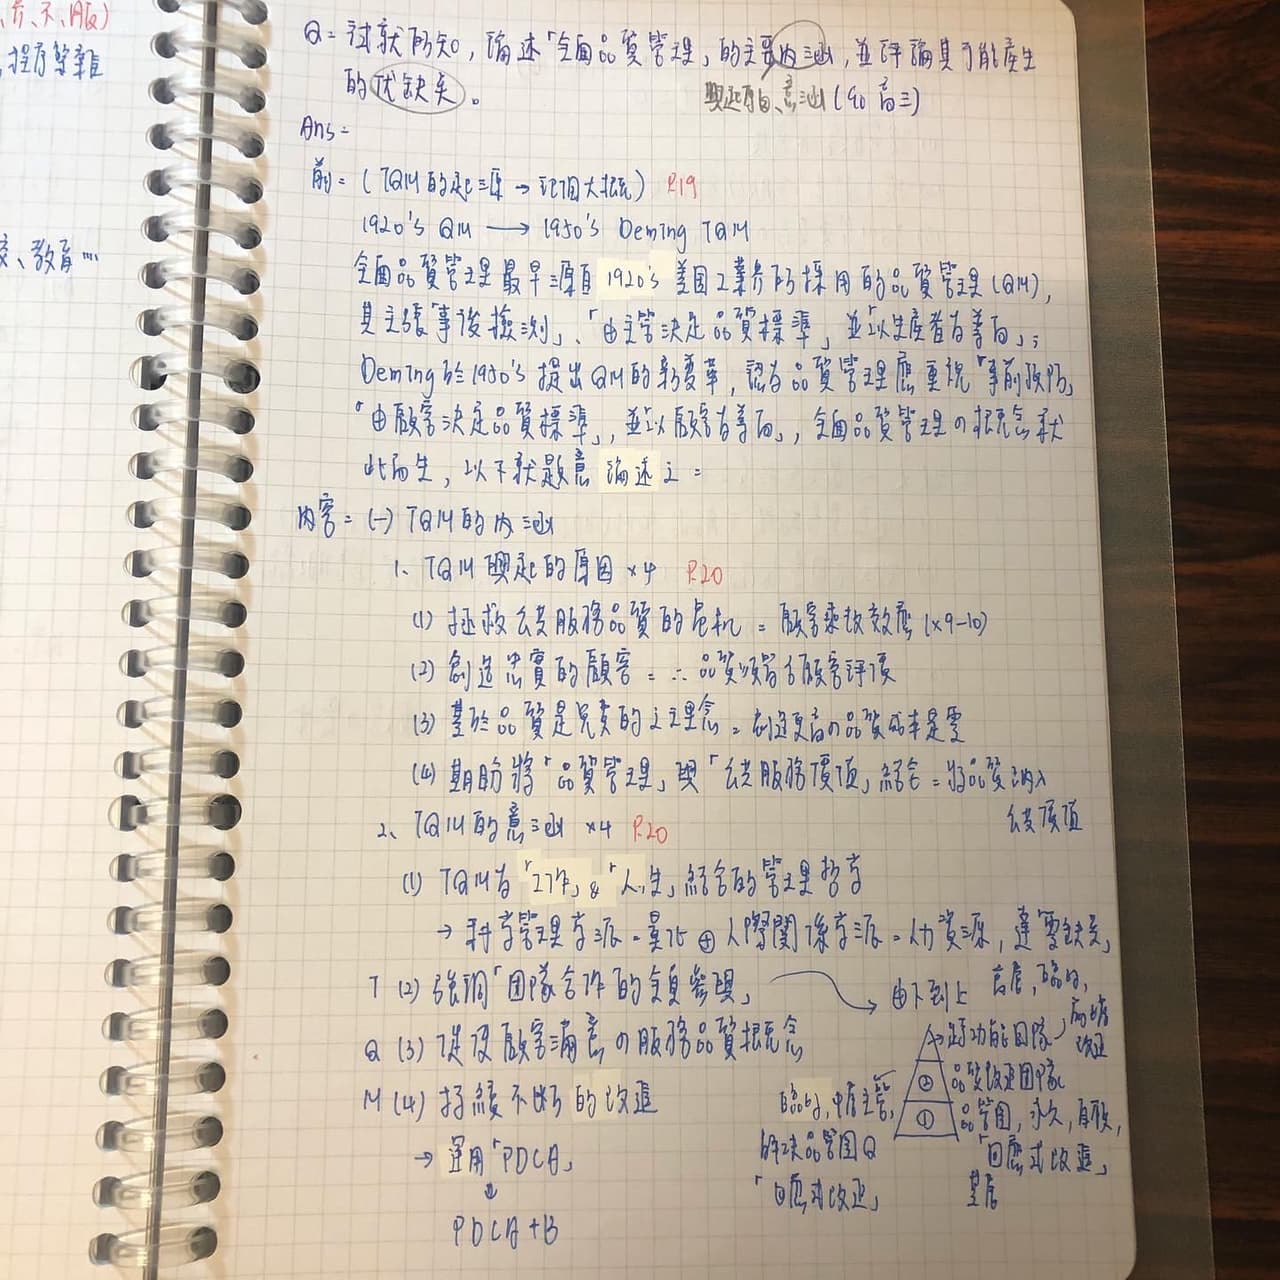 、介、不、服)
,程序繁雜
、教育…
Q=試就所知,論述「全面品質管理」的主要內涵,並評論其可能產生
的優缺失。
興起原因、意涵(90 高三)
Ans=
前=(TQM的起源→範圍大概) P.19
1920's QM → 1950's Deming TQM
全面品質管理最早源自1920's美國工業界所採用的品質管理(QM),
其主張「事後檢測」、「由主管決定品質標準」並「以生產者為導向」;
Deming於1950's提出QM的新變革,認為品質管理應重視「事前預防」
「由顧客決定品質標準」,並以顧客為導向」,全面品質管理の概念就
此而生,以下就題意論述之=
內容=(一)TQM的內涵
1、TQM興起的原因×4 P.20
(1)拯救公共服務品質的危机=顧客乘數效應(×9-10)
(2)創造忠實的顧客=∴品質須留給顧客評價
(3)基於品質是免費的主理念=創造更高の品質成本是零
(4)期盼將「品質管理」與「公共服務價值」結合=將品質納入
公共價值
2、TQM的意涵 ×4 P.20
(1)TQM為「工作」&「人生」結合的管理哲學
→科學管理學派=量化⊕人際關係學派=人力資源,達零缺失
T(2)強調「團隊合作的全員參與」
→由下到上
高層,臨時,
前瞻
改進
跨功能團隊
Q(3)促使顧客滿意の服務品質概念
②
品質改進團隊
M(4)持續不斷的改進
臨時,中層主管,
①
品管圈,永久,自願,
解決品管圈Q
「回應式改進」
「回應式改進」
基層
→運用「PDCA」
↓
PDCA+B